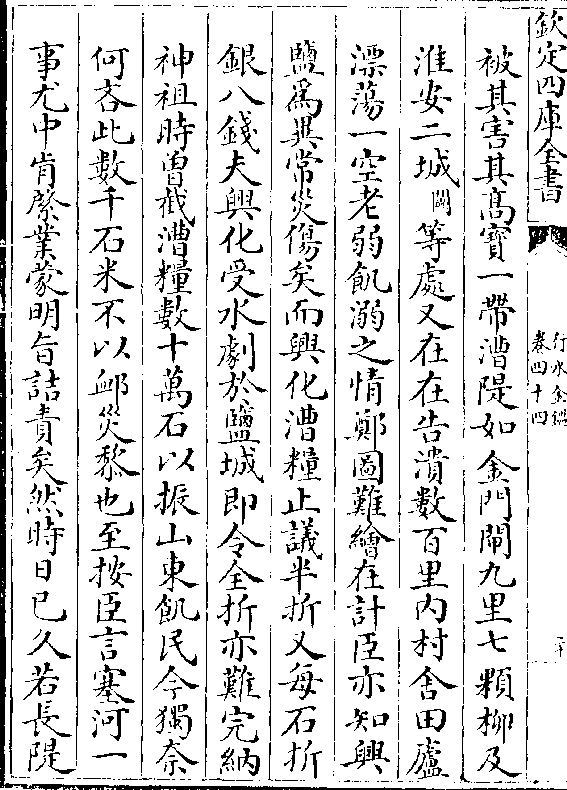 欽定四庫全書
行水金鑑
卷四十四
被其害其髙寳一帶漕隄如金門閘九里七顆柳及
淮安二城闗等處又在在告潰數百里内村舍田廬
漂蕩一空老弱飢溺之情鄭圖難繪在計臣亦知興
鹽爲異常災傷矣而興化漕糧止議半折又每石折
銀八錢夫興化受水劇於鹽城即令全折亦難完納
神祖時曽截漕糧數十萬石以振山東飢民今獨奈
何吝此數千石米不以邺災黎也至按臣言塞河一
事尤中肯綮業蒙明旨詰責矣然時日已久若長隄